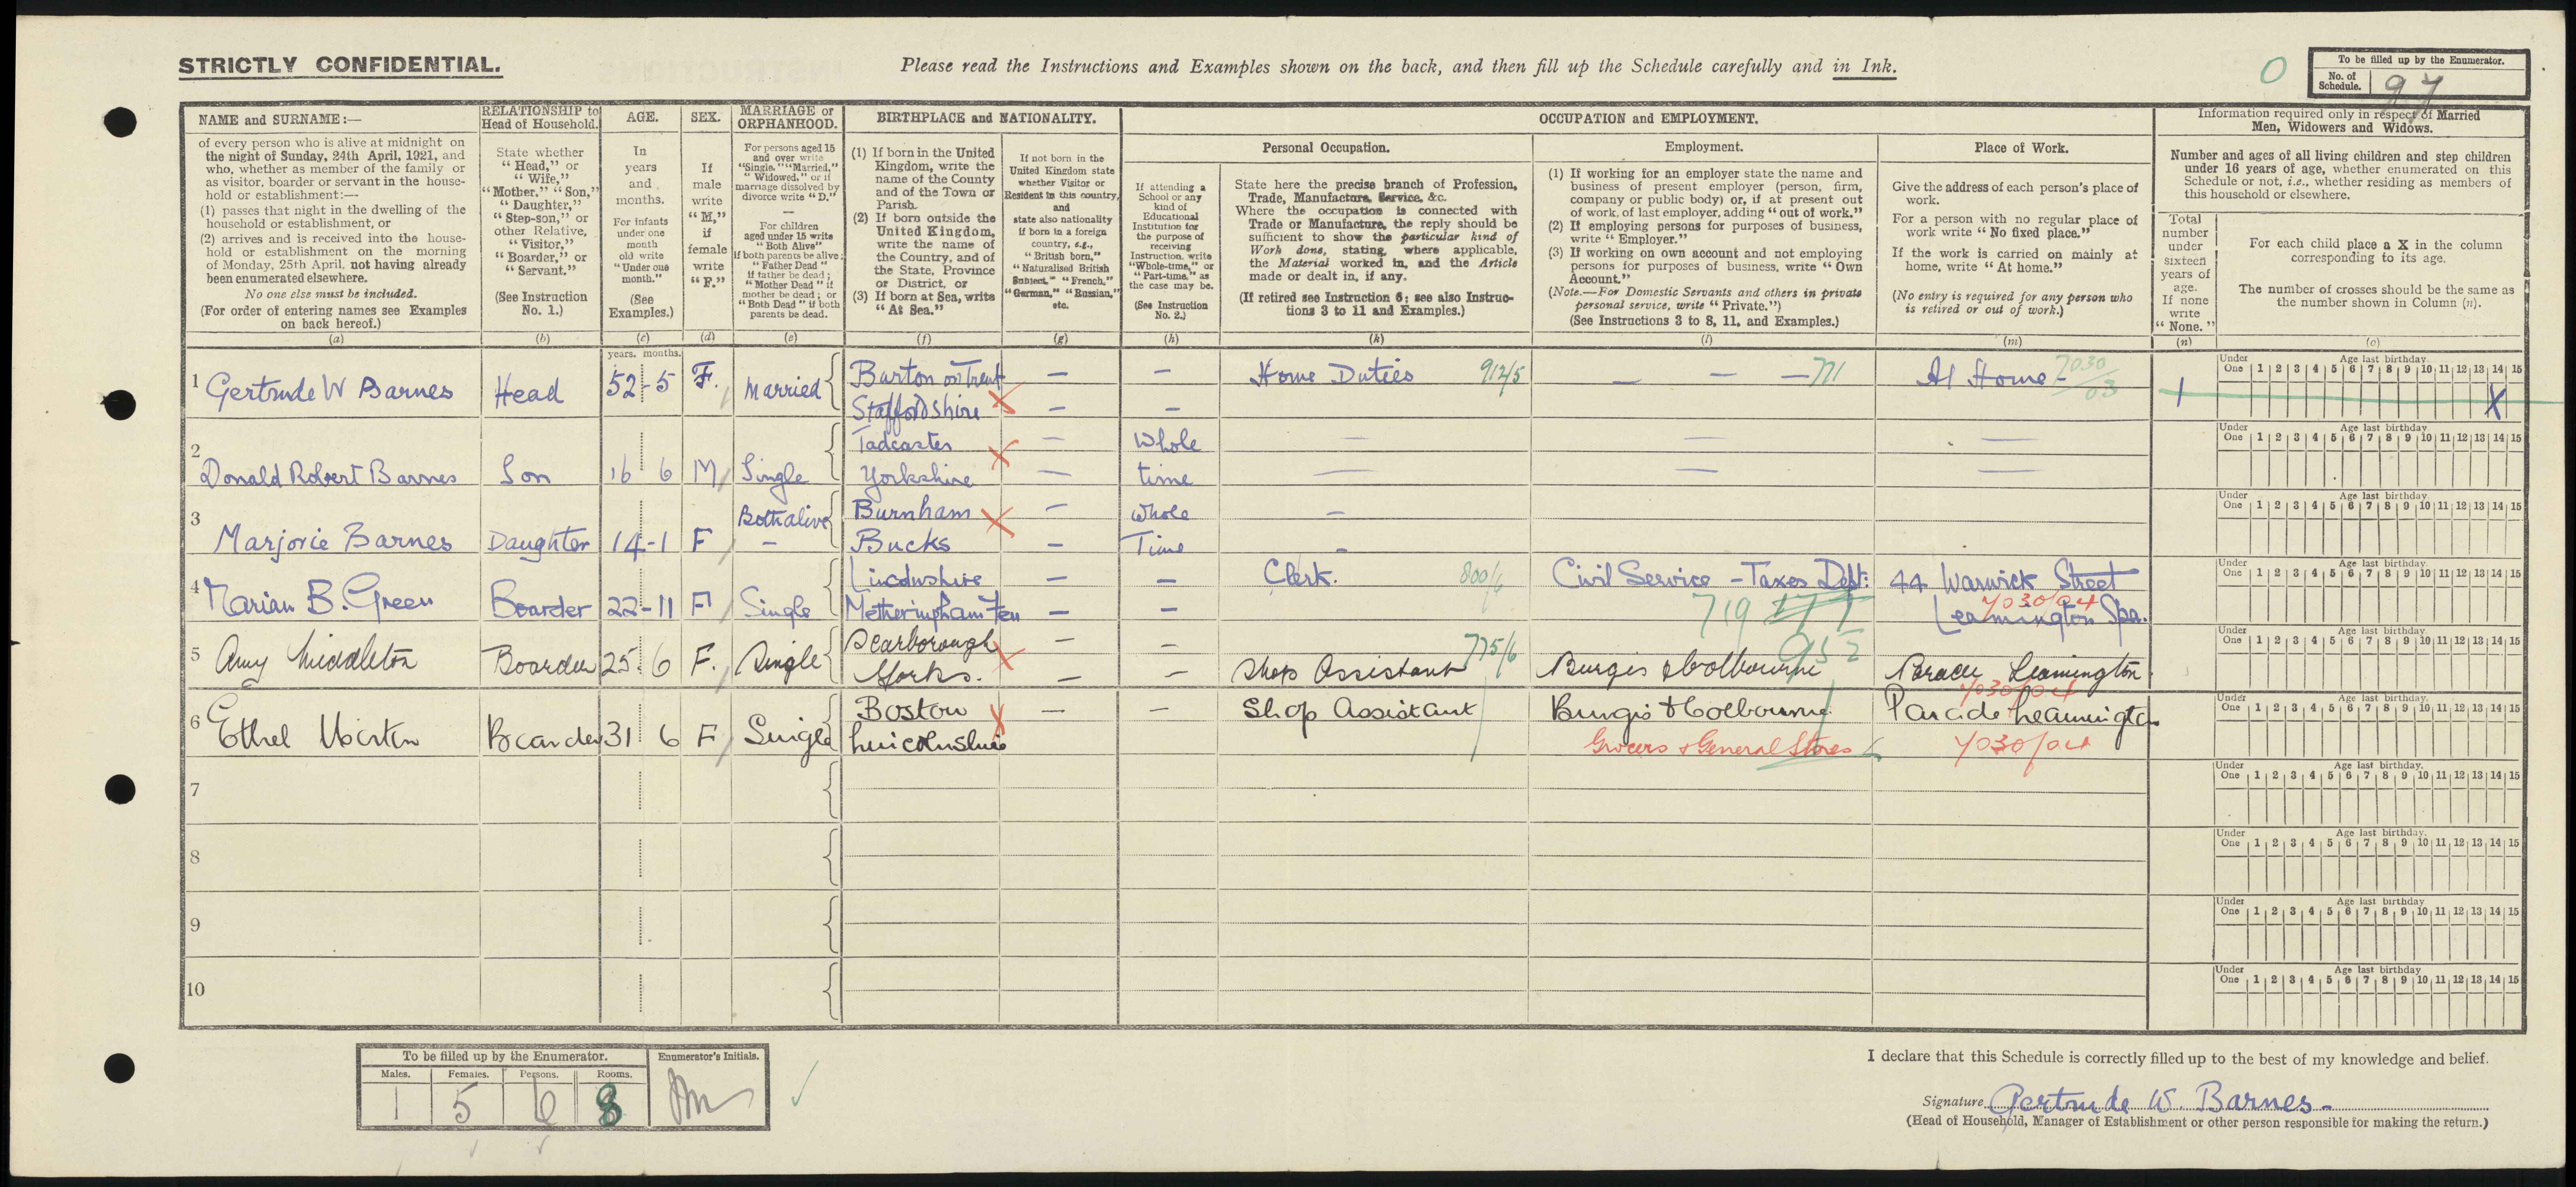 STRICTLY CONFIDENTIAL.
Please read the Instructions and Examples shown on the back, and then fill up the Schedule carefully and in Ink.
0
To be filled up by the Enumerator.
No. of Schedule. 97
NAME and SURNAME:—
of every person who is alive at midnight on
the night of Sunday, 24th April, 1921, and
who, whether as member of the family or
as visitor, boarder or servant in the house-
hold or establishment:—
(1) passes that night in the dwelling of the
household or establishment, or
(2) arrives and is received into the house-
hold or establishment on the morning
of Monday, 25th April, not having already
been enumerated elsewhere.
No one else must be included.
(For order of entering names see Examples
on back hereof.)
(a)
RELATIONSHIP to
Head of Household.
State whether
"Head," or
"Wife,"
"Mother," "Son,"
"Daughter,"
"Step-son," or
other Relative,
"Visitor,"
"Boarder," or
"Servant."
(See Instruction
No. 1.)
(b)
AGE.
In
years
and
months.
For infants
under one
month
old write
"Under one
month."
(See
Examples.)
(c)
SEX.
If
male
write
"M,"
if
female
write
"F."
(d)
MARRIAGE or
ORPHANHOOD.
For persons aged 15
and over write
"Single," "Married,"
"Widowed," or if
marriage dissolved by
divorce write "D."
—
For children
aged under 15 write
"Both Alive"
if both parents be alive;
"Father Dead"
if father be dead;
"Mother Dead" if
mother be dead; or
"Both Dead" if both
parents be dead.
(e)
BIRTHPLACE and NATIONALITY.
(1) If born in the United
Kingdom, write the
name of the County
and of the Town or
Parish.
(2) If born outside the
United Kingdom,
write the name of
the Country, and of
the State, Province
or District, or
(3) If born at Sea, write
"At Sea."
(f)
If not born in the
United Kingdom state
whether Visitor or
Resident in this country,
and
state also nationality
if born in a foreign
country, e.g.,
"British born,"
"Naturalised British
Subject," "French,"
"German," "Russian,"
etc.
(g)
OCCUPATION and EMPLOYMENT.
If attending a
School or any
kind of
Educational
Institution for
the purpose of
receiving
Instruction, write
"Whole-time," or
"Part-time," as
the case may be.
(See Instruction
No. 2.)
(h)
Personal Occupation.
State here the precise branch of Profession,
Trade, Manufacture, Service, &c.
Where the occupation is connected with
Trade or Manufacture, the reply should be
sufficient to show the particular kind of
Work done, stating, where applicable,
the Material worked in, and the Article
made or dealt in, if any.
(If retired see Instruction 6; see also Instruc-
tions 3 to 11 and Examples.)
(k)
Employment.
(1) If working for an employer state the name and
business of present employer (person, firm,
company or public body) or, if at present out
of work, of last employer, adding "out of work."
(2) If employing persons for purposes of business,
write "Employer."
(3) If working on own account and not employing
persons for purposes of business, write "Own
Account."
(Note.—For Domestic Servants and others in private
personal service, write "Private.")
(See Instructions 3 to 8, 11, and Examples.)
(l)
Place of Work.
Give the address of each person's place of
work.
For a person with no regular place of
work write "No fixed place."
If the work is carried on mainly at
home, write "At home."
(No entry is required for any person who
is retired or out of work.)
(m)
Information required only in respect of Married
Men, Widowers and Widows.
Number and ages of all living children and step children
under 16 years of age, whether enumerated on this
Schedule or not, i.e., whether residing as members of
this household or elsewhere.
Total
number
under
sixteen
years of
age.
If none
write
"None."
(n)
For each child place a X in the column
corresponding to its age.
The number of crosses should be the same as
the number shown in Column (n).
(o)
years. months.
1 Gertrude W Barnes Head 52-5 F. Married Burton on Trent — — Home Duties 912/5 — — —771 At Home- 7030/03 1 X
Staffordshire — —
Under One 1 2 3 4 5 6 7 8 9 10 11 12 13 14 15 Age last birthday.
2 Donald Robert Barnes Son 16 6 M Single Tadcaster — Whole — — —
Yorkshire — time — — —
Under One 1 2 3 4 5 6 7 8 9 10 11 12 13 14 15 Age last birthday.
3 Marjorie Barnes Daughter 14-1 F Both alive Burnham — Whole —
— Bucks — Time —
Under One 1 2 3 4 5 6 7 8 9 10 11 12 13 14 15 Age last birthday.
4 Marian B. Green Boarder 22-11 F Single Lincolnshire — — Clerk. 800/6 Civil Service - Taxes Dept: 44 Warwick Street
Metheringham Fen — — 719 7030/04 Leamington Spa.
Under One 1 2 3 4 5 6 7 8 9 10 11 12 13 14 15 Age last birthday.
5 Amy Middleton Boarder 25 6 F. Single Scarborough — — 775/6 952
Yorks. — — Shop Assistant Burgis & Colbourne Parade Leamington
7030/04
Under One 1 2 3 4 5 6 7 8 9 10 11 12 13 14 15 Age last birthday.
6 Ethel Boarder 31 6 F Single Boston — — Shop Assistant Burgis & Colbourne. Parade Leamington
Lincolnshire Grocers & General Stores 7030/04
Under One 1 2 3 4 5 6 7 8 9 10 11 12 13 14 15 Age last birthday.
7
Under One 1 2 3 4 5 6 7 8 9 10 11 12 13 14 15 Age last birthday.
8
Under One 1 2 3 4 5 6 7 8 9 10 11 12 13 14 15 Age last birthday.
9
Under One 1 2 3 4 5 6 7 8 9 10 11 12 13 14 15 Age last birthday.
10
Under One 1 2 3 4 5 6 7 8 9 10 11 12 13 14 15 Age last birthday
To be filled up by the Enumerator. Enumerator's Initials.
Males. Females. Persons. Rooms.
1 5 6 8
I declare that this Schedule is correctly filled up to the best of my knowledge and belief.
Signature Gertrude W. Barnes-
(Head of Household, Manager of Establishment or other person responsible for making the return.)